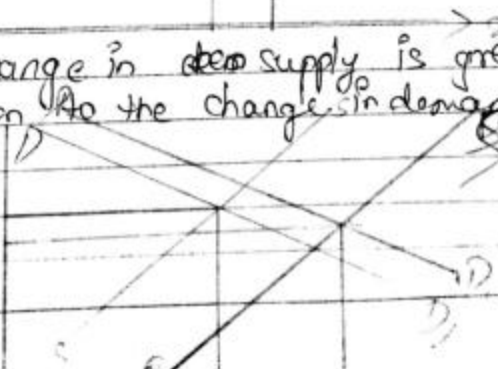 ange in supply is gre
n to the change in deman
D
D
D
S